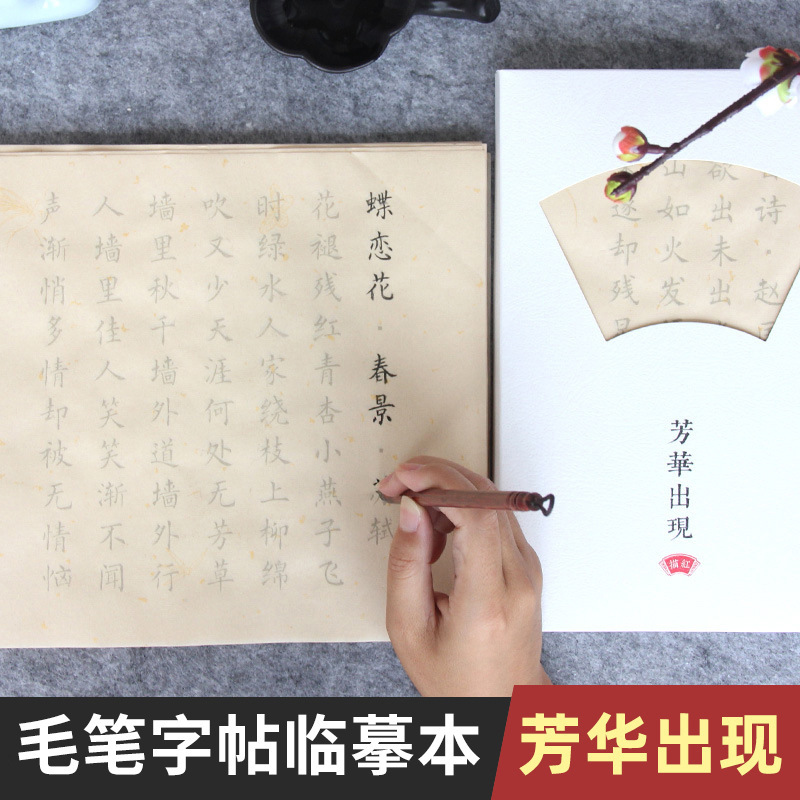 蝶恋花·春景·苏轼
花褪残红青杏小燕子飞
时绿水人家绕枝上柳绵
吹又少天涯何处无芳草
墙里秋千墙外道墙外行
人墙里佳人笑笑渐不闻
声渐悄多情却被无情恼
诗·赵
欲出未出
山如火发
逐却残
芳華出現
描红
毛笔字帖临摹本
芳华出现